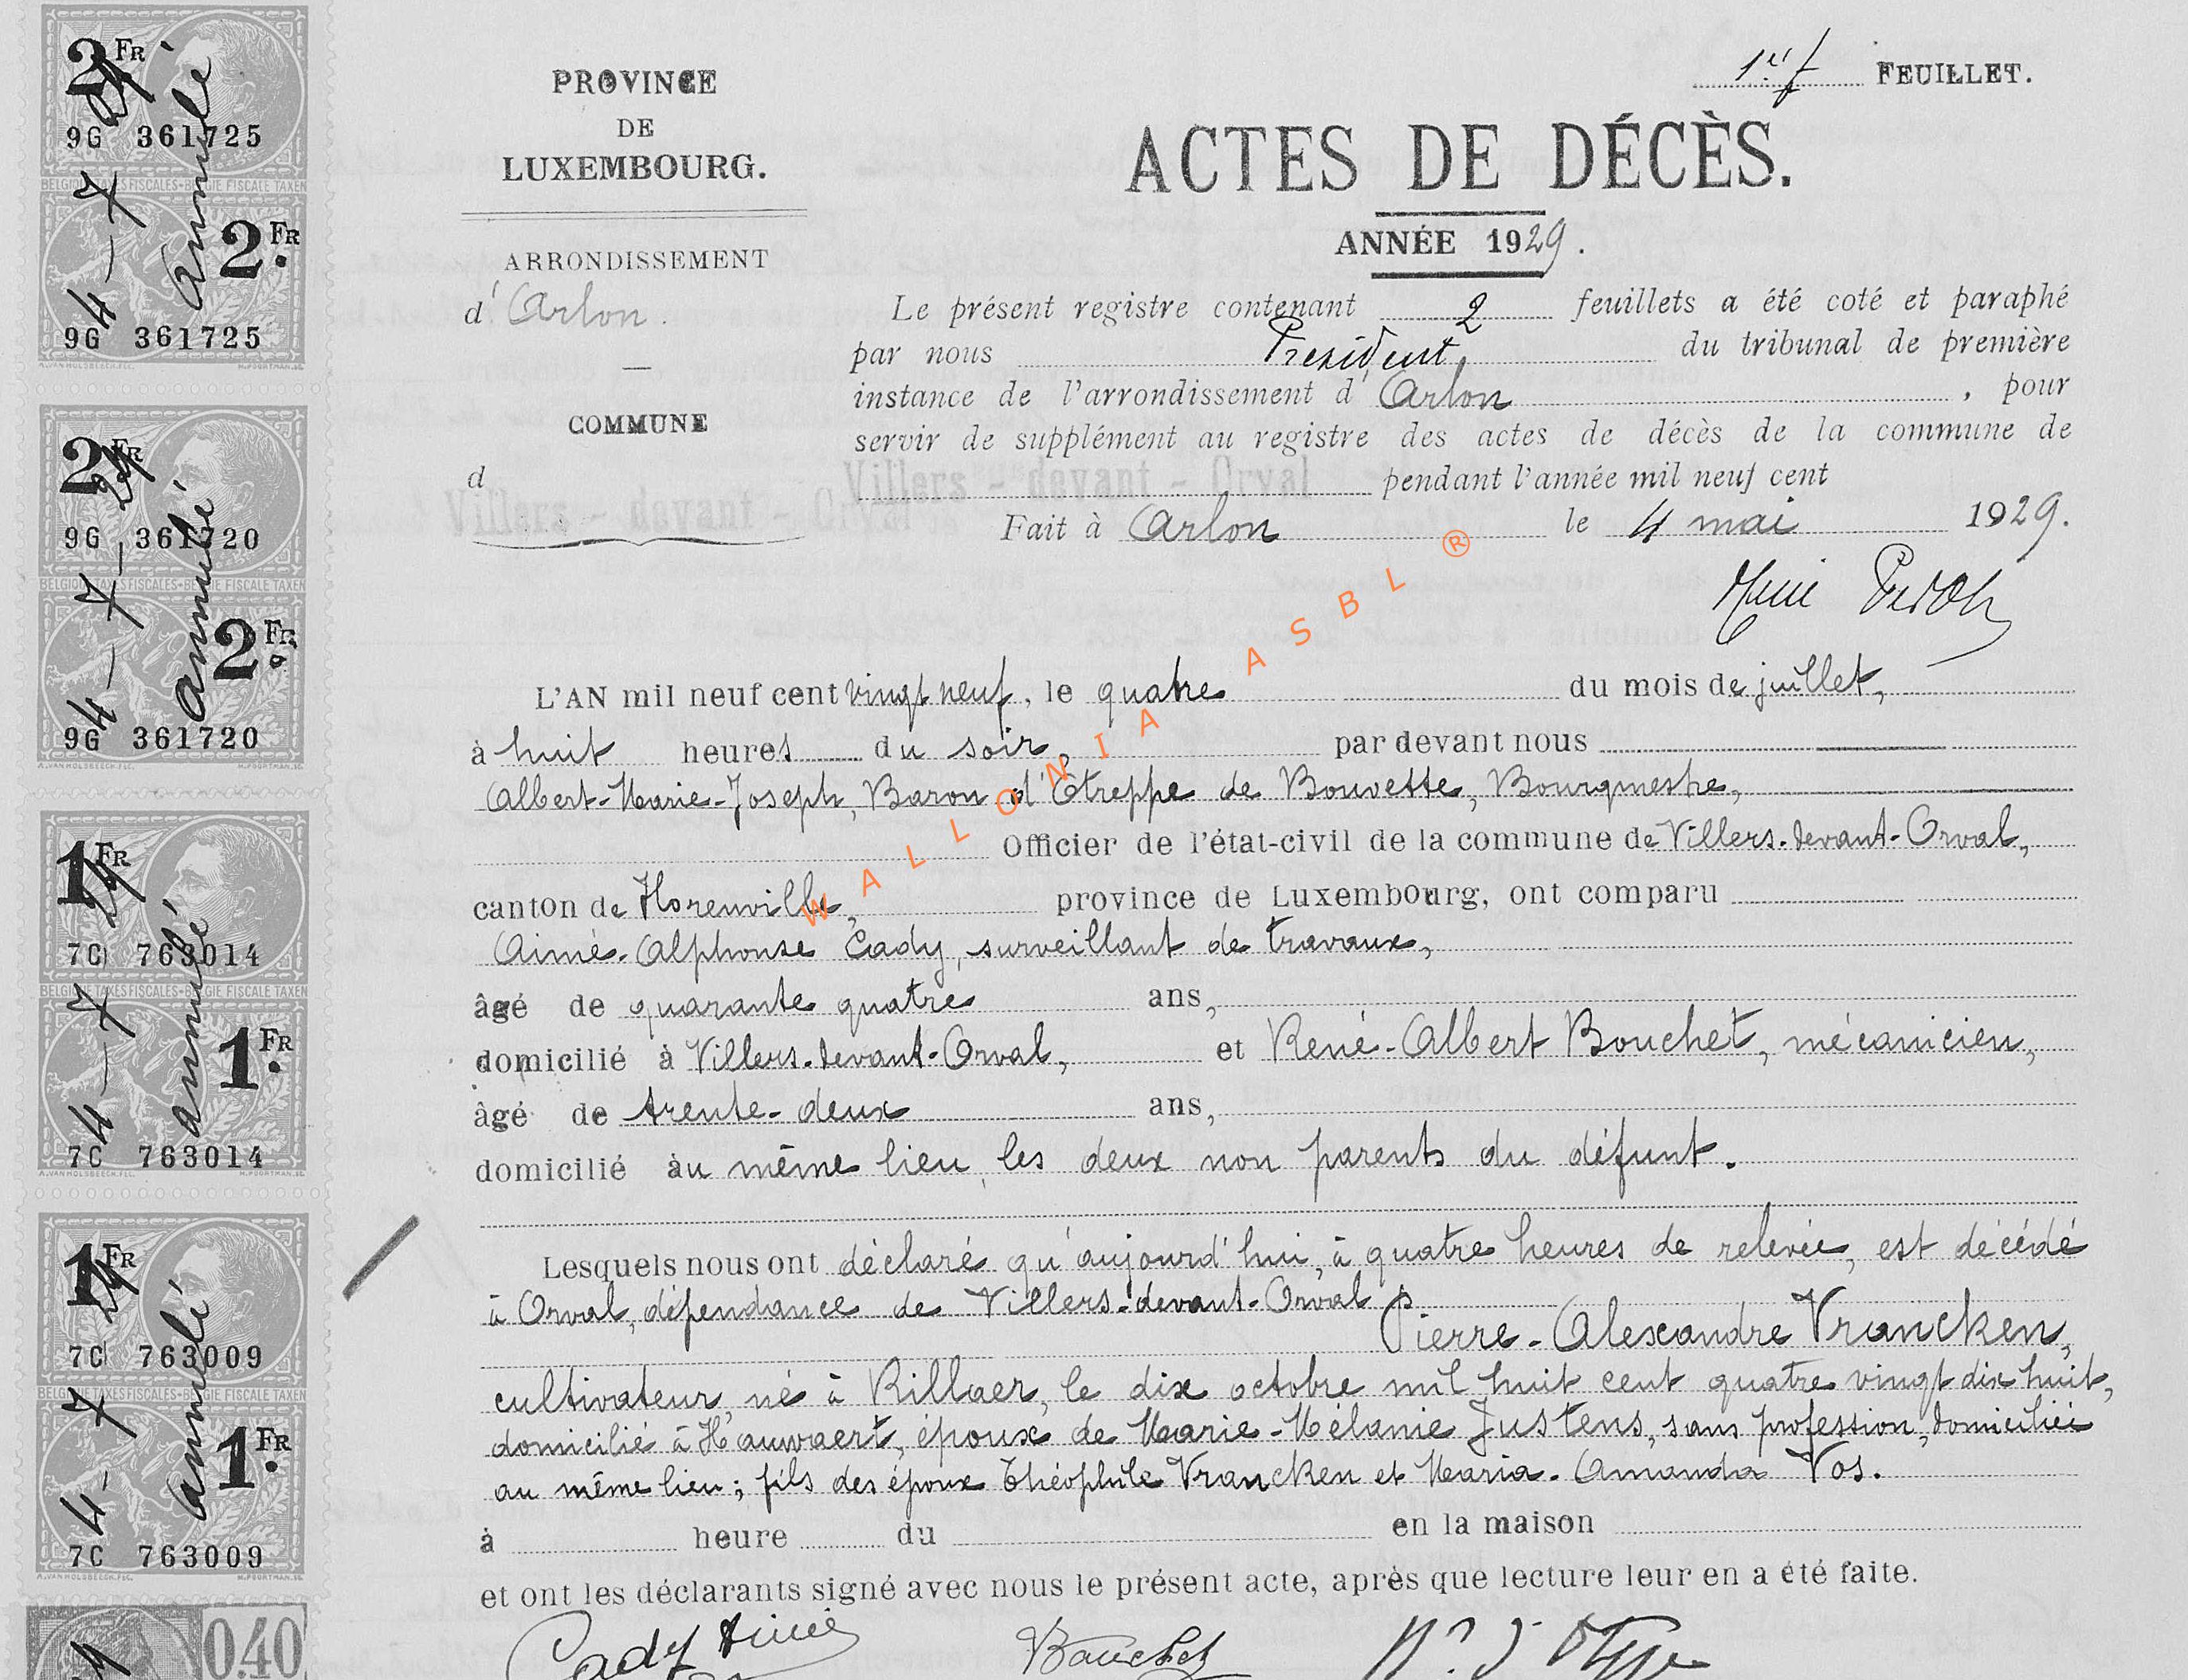 2 FR
9G 361725
BELGIQUE TAXES FISCALES-BELGIE FISCALE TAXEN
2 FR
9G 361725
4 - 7 - 29
annulé
2 FR
9G 361720
BELGIQUE TAXES FISCALES-BELGIE FISCALE TAXEN
2 FR
9G 361720
4 - 7 - 29
annulé
1 FR
7C 763014
BELGIQUE TAXES FISCALES-BELGIE FISCALE TAXEN
1 FR
7C 763014
4 - 7 29
annulé
1 FR
7C 763009
BELGIQUE TAXES FISCALES-BELGIE FISCALE TAXEN
1 FR
7C 763009
4 - 7 29
annulé
0.40
PROVINCE
DE
LUXEMBOURG.
ARRONDISSEMENT
d'Arlon.
COMMUNE
d
Villers - devant - Orval
1er f FEUILLET.
ACTES DE DÉCÈS.
ANNÉE 1929.
Le présent registre contenant 2 feuillets a été coté et paraphé
par nous Président, du tribunal de première
instance de l'arrondissement d'Arlon, pour
servir de supplément au registre des actes de décès de la commune de
Villers - devant - Orval pendant l'année mil neuf cent
Fait à Arlon le 4 mai 1929.
L'AN mil neuf cent vingt neuf, le quatre du mois de juillet,
à huit heures du soir, par devant nous
Albert-Marie-Joseph, Baron d'Otreppe de Bouvette, Bourgmestre,
Officier de l'état-civil de la commune de Villers-devant-Orval,
canton de Florenville, province de Luxembourg, ont comparu
Aimé-Alphonse Cady, surveillant de travaux,
âgé de quarante quatre ans,
domicilié à Villers-devant-Orval, et René-Albert Bouchet, mécanicien,
âgé de trente-deux ans,
domicilié au même lieu, les deux non parents du défunt.
Lesquels nous ont déclaré qu'aujourd'hui, à quatre heures de relevée, est décédé
à Orval, dépendance de Villers-devant-Orval
Pierre-Alexandre Vrancken,
cultivateur, né à Rillaer, le dix octobre mil huit cent quatre vingt dix huit,
domicilié à Hauwaert, époux de Marie-Mélanie Justens, sans profession, domiciliée
au même lieu; fils des époux Théophile Vrancken et Maria-Amanda Vos.
à heure du en la maison
et ont les déclarants signé avec nous le présent acte, après que lecture leur en a été faite.
Cady Aimé
Bouchet
WALLONIA ASBL ®